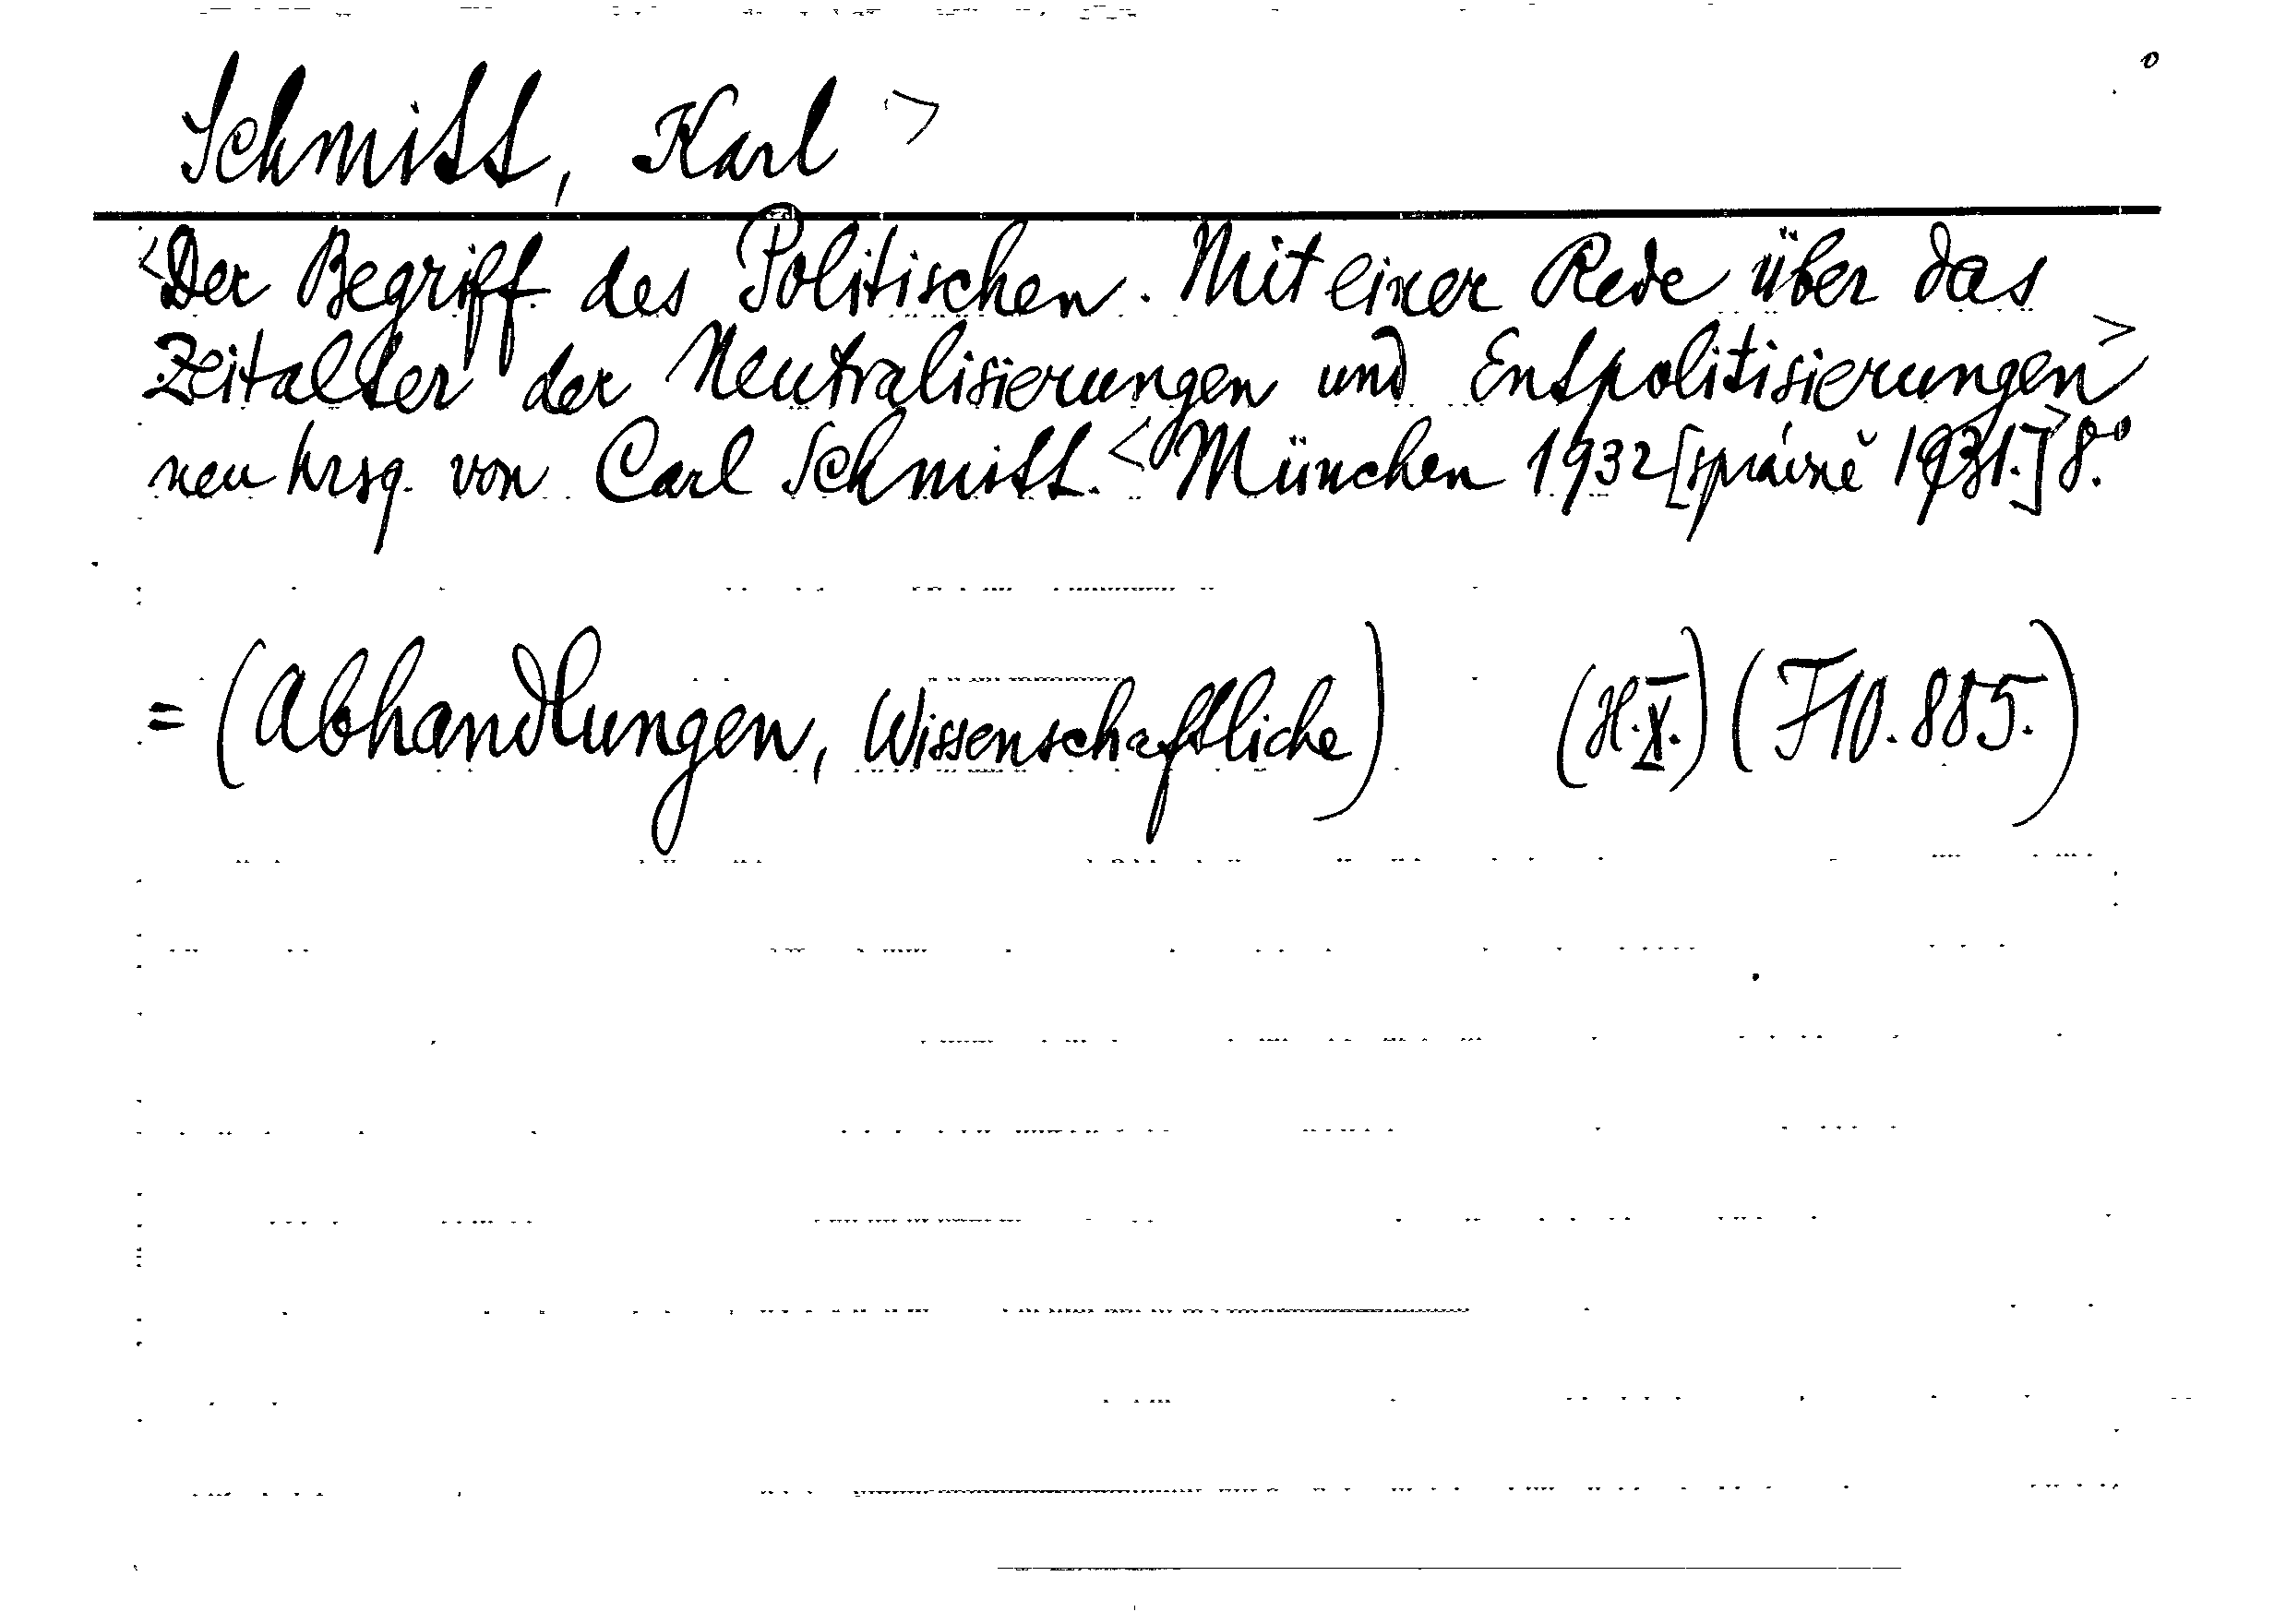 Schmitt, Karl >
<Der Begriff des Politischen. Mit einer Rede über das
Zeitalter der Neutralisierungen und Entpolitisierungen>
neu hrsg. von Carl Schmitt. <München 1932 [správně 1931.]> 8.°
= (Abhandlungen, Wissenschaftliche) (H.X.) (F10.885.)